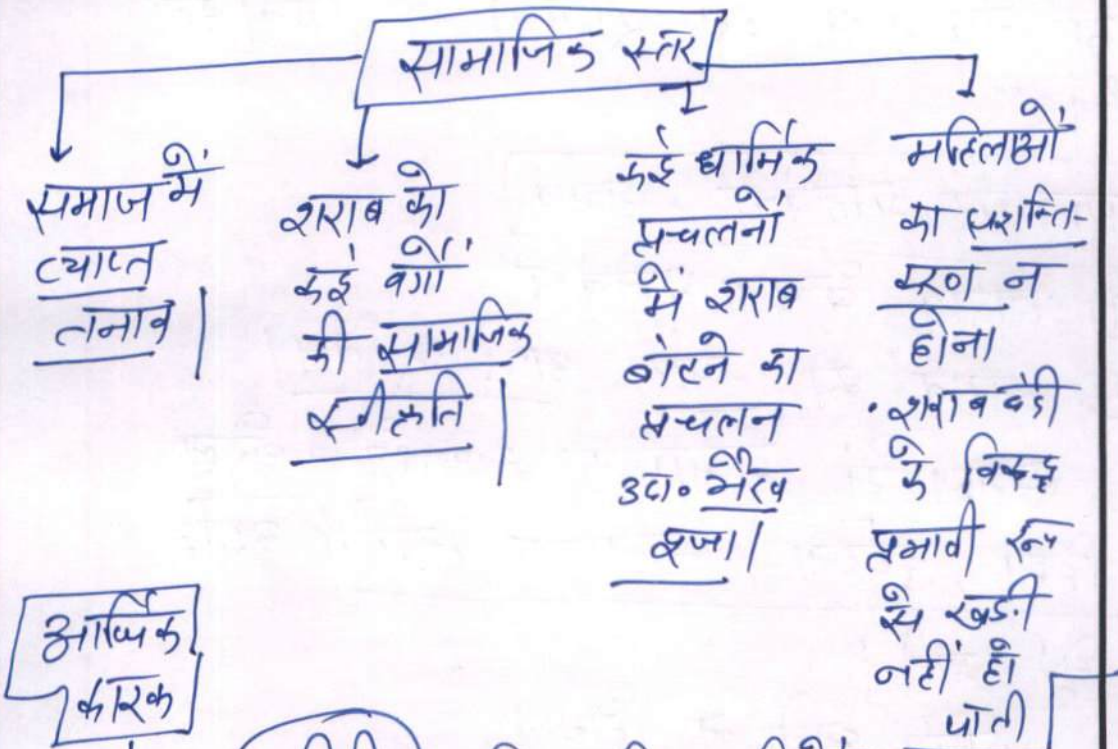 सामाजिक स्तर
समाज में
व्याप्त
तनाव।
शराब को
कई वर्गों
की सामाजिक
स्वीकृति।
कई धार्मिक
प्रचलनों
में शराब
बांटने का
प्रचलन
उदा. भैरव
पूजा।
महिलाओं
का सशक्ति-
करण न
होना
• शराबबंदी
के विरूद्ध
प्रभावी रूप
से खड़ी
नहीं हो
पाती
आर्थिक
कारक